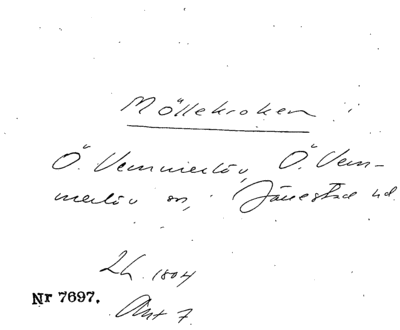 Möllekroken i
Ö. Vemmerlöv, Ö. Vem-
merlöv sn, Järrestad hd.
Lh. 1804
Akt 7.
Nr 7697.